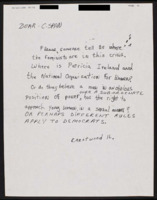 DEAR C-SPAN
Please, someone tell me where
the feminists are in this crisis.
Where is Patricia Ireland and
the National Organization for Women?
Do they believe a man in an
position of power, has the right to
approach young women in a sexual manner?
OR PERHAPS DIFFERENT RULES
APPLY TO DEMOCRATS.